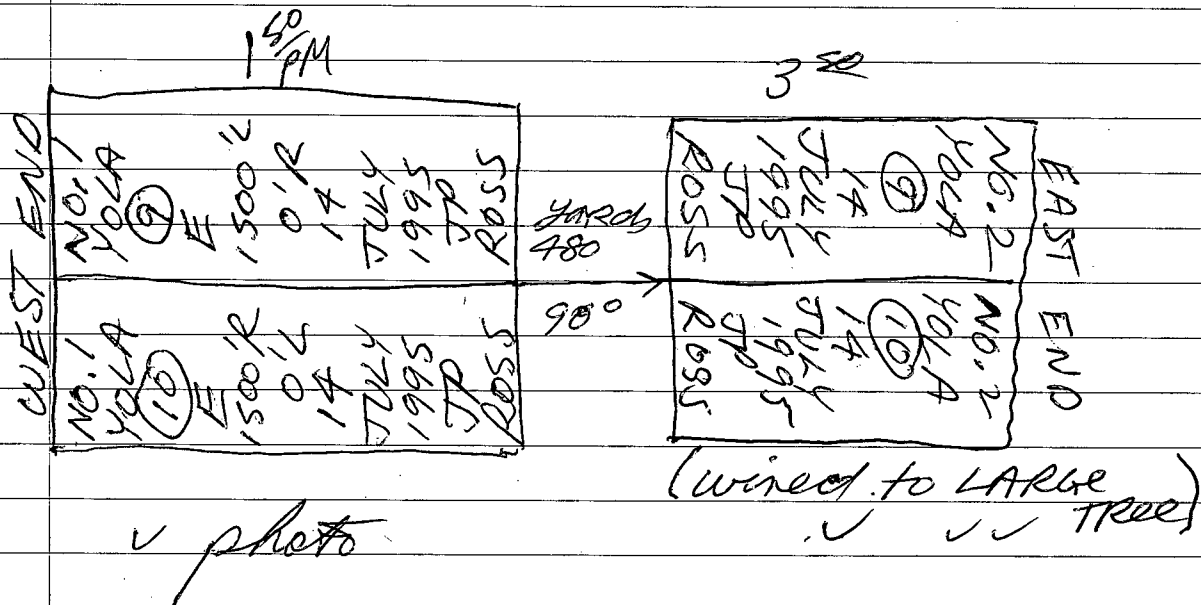 1 50/PM
WEST END
NO.1
YOLA
9
E
1500'L
0'R
14
JULY
1995
JP
ROSS
NO.1
YOLA
10
E
1500'R
0'L
14
JULY
1995
JP
ROSS
yards
480
90°
3 50
EAST END
NO.2
YOLA
9
14
JULY
1995
JP
ROSS
NO.2
YOLA
10
14
JULY
1995
JP
ROSS
(wired to LARGE
TREE)
photo